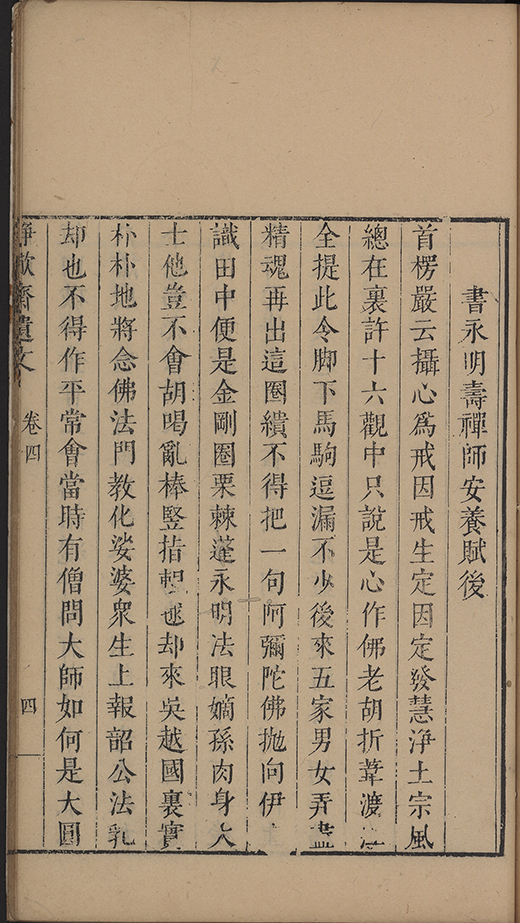 書永明壽禪師安養賦後
首楞嚴云攝心爲戒因戒生定因定發慧淨土宗風
總在裏許十六觀中只說是心作佛老胡折葦渡江
全提此令脚下馬駒逗漏不少後來五家男女弄盡
精魂再出這圈繢不得把一句阿彌陀佛拋向伊
識田中便是金剛圈栗棘蓬永明法眼嫡孫肉身大
士他豈不會胡喝亂棒竪指却來吳越國裏實
朴朴地將念佛法門教化娑婆衆生上報韶公法乳
却也不得作平常會當時有僧問大師如何是大圓
齋遺文 卷四 四